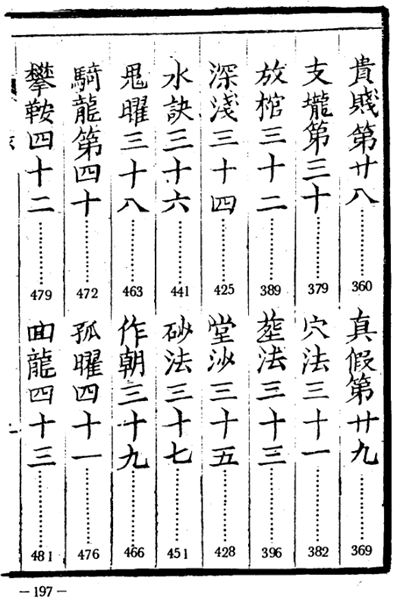 貴賤第廿八………360 真假第廿九………369
支壠第三十………379 穴法三十一………382
放棺三十二………389 塟法三十三………396
深淺三十四………425 堂沙三十五………428
水訣三十六………441 砂法三十七………451
鬼曜三十八………463 作朝三十九………466
騎龍第四十………472 孤曜四十一………476
攀鞍四十二………479 回龍四十三………481
－197－